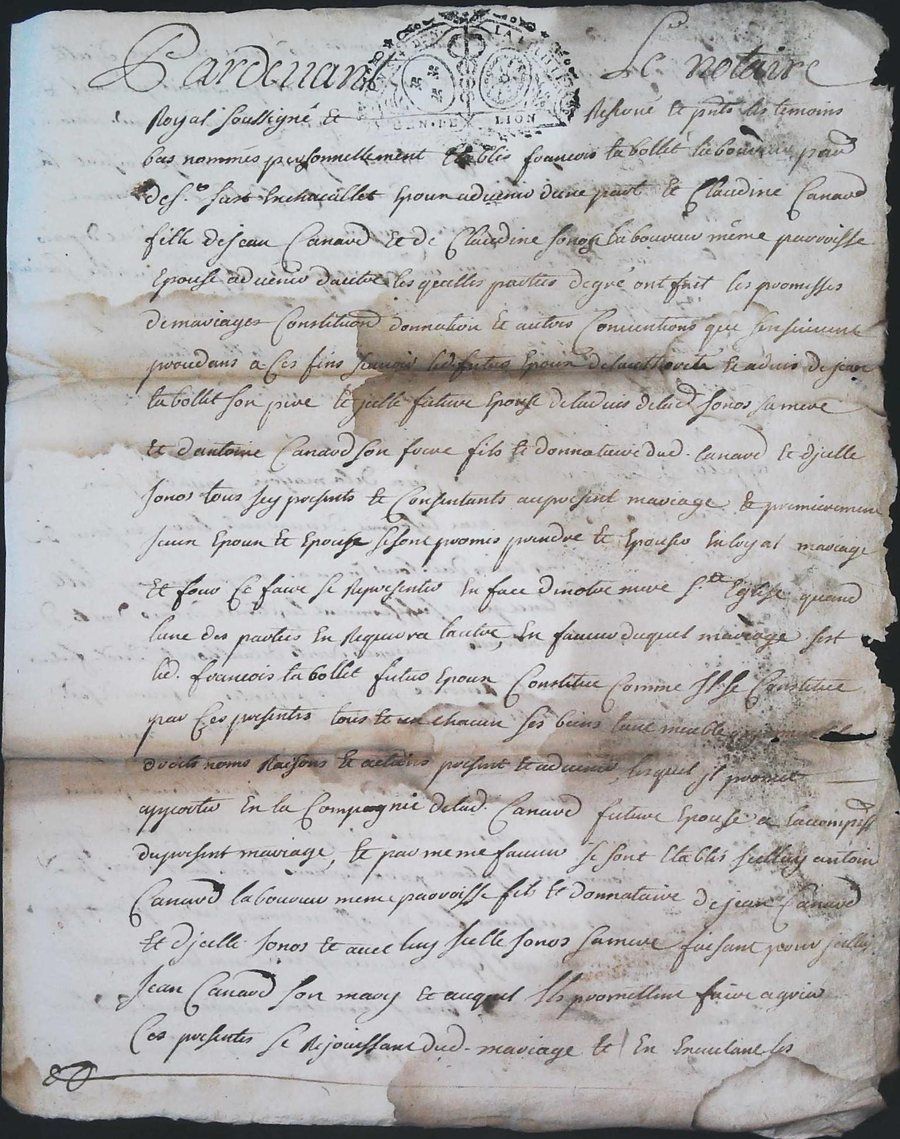 Pardevant Le notaire
LA
DEN DE LION
Royal soussigné et Reservé et pnts les temoins
bas nommés personnellement Etablis francois la bollet laboureur
de st. Epoux advenir dune part et Claudine Canard
fille de jean Canard et de Claudine jonos laboureur même parroisse
Epouse advenir dautre les quelles parties de gré ont fait les promesses
de mariages Constitution donnation et autres Conventions que sensuivent
procedans a Ces fins ledt futur Epoux de lauthorité et advis de jean
la bollet son pere et jcelle future Epouse de ladvis de lad. jonos sa mere
et dantoine Canard son frere fils et donnataire dud. Canard et djcelle
jonos tous jcy presents et Consentants au present mariage et premierement
Epoux et Epouse se sont promis prendre et Epouser En loyal mariage
Et pour Ce faire se Representer En face de notre mere ste Eglise quand
lune des parties En Requerra lautre, En faveur duquel mariage sest
led. francois la bollet futur Epoux Constitué Comme jl se Constitue
par Ces presentes tous et un chacun ses biens tant meubles
droits noms Raisons et actions present et advenir, lesquel jl promet
apporter En la Compagnie de lad. Canard future Epouse a
du present mariage, et par meme faveur se sont Etablis antoine
Canard laboureur meme parroisse fils et donnataire de jean Canard
Et djcelle jonos et avec luy jcelle jonos sa mere faisant pour
Jean Canard son mary et auquel jls promettent faire agréer
Ces presentes se Rejouissant dud. mariage et En les